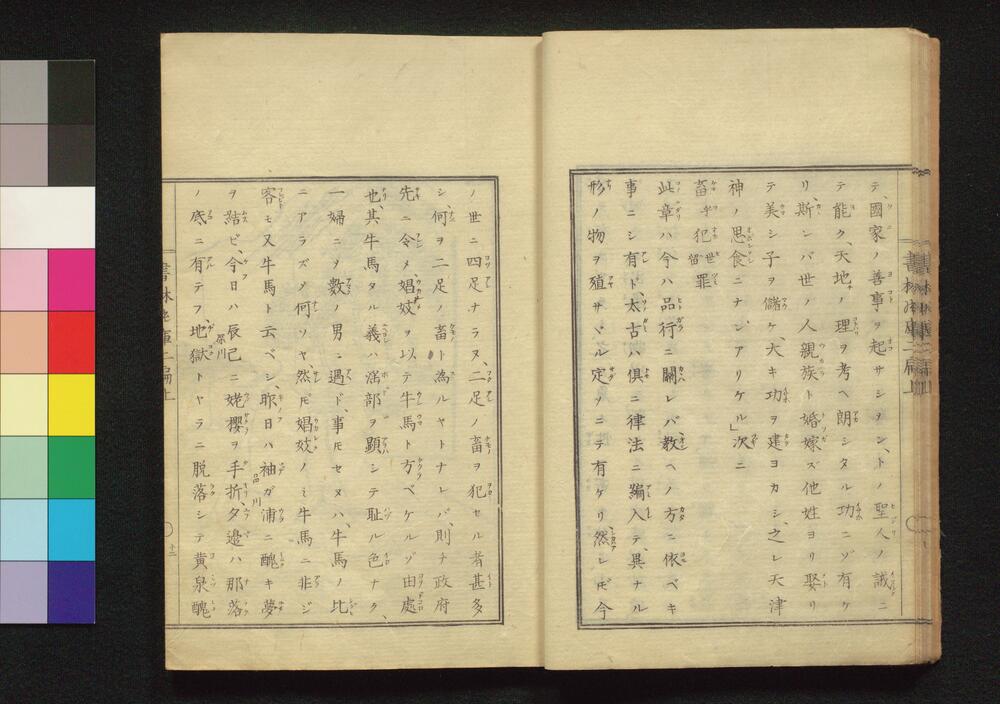 テ、國家ノ善事ヲ起サシヲント、ノ聖人ノ誡ニ
テ能ク、天地ノ理ヲ考ヘ朗シタル功ニゾ有ケ
リ、斯ンバ世ノ人親族ト婚嫁ズ他姓ヨリ娶リ
テ美シ子ヲ儲ケ、大キ功ヲ建ヨカシ、之レ天津
神ノ思食ニナンアリケル」次ニ
畜乎犯世留罪
此章ハ今ハ品行ニ關レバ、教ヘノ方ニ依ベキ
事ニシ有ド、太古ハ倶ニ律法ニ編入テ、異ナル
形ノ物ヲ殖サヾル定ソニテ有ケリ、然レ𪜈今
ノ世ニ四足ナラヌ、二足ノ畜ヲ犯セル者甚多
シ、何ヲ二足ノ畜ト為ルヤトナレバ、則チ政府
先ニ令メ、娼妓ヲ以テ牛馬ト方ベケルゾ由處
也、其牛馬タル義ハ陰部ヲ顕シテ耻ル色ナク、
一婦ニヲ数ノ男ニ遇ド、事𪜈セヌハ、牛馬ノ比
ニアラズヤ何ソヤ、然𪜈娼妓ノミ牛馬ニ非ジ
客モ又牛馬ト云ベシ、昨日ハ袖ガ浦ニ醜キ夢
品川
ヲ結ビ、今日ハ辰己ニ姥櫻ヲ手折、夕邉ハ那落
深川
ノ底ニ有テフ、地獄トヤラニ脱落シテ黄泉醜
十二